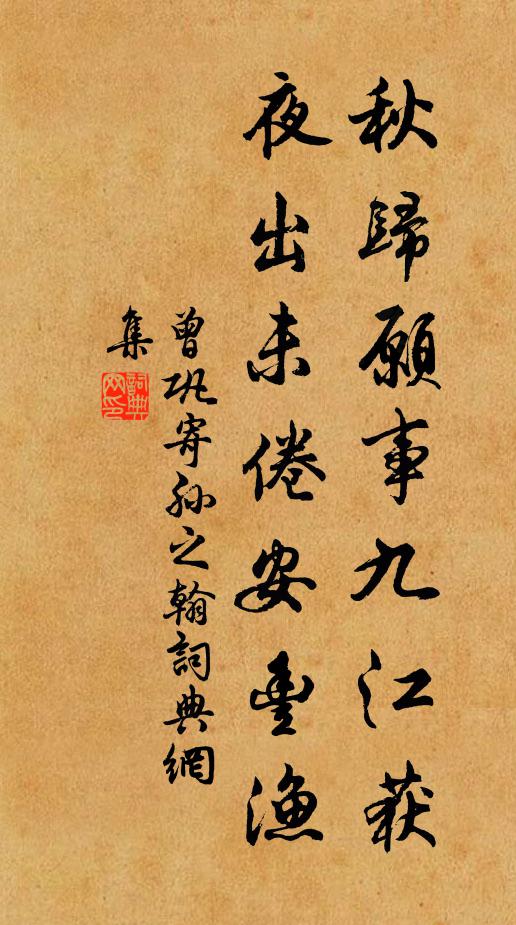 秋歸願事九江获
夜出未倦安豐漁
曾巩寄孙之翰詞典網
集
詞典
网印